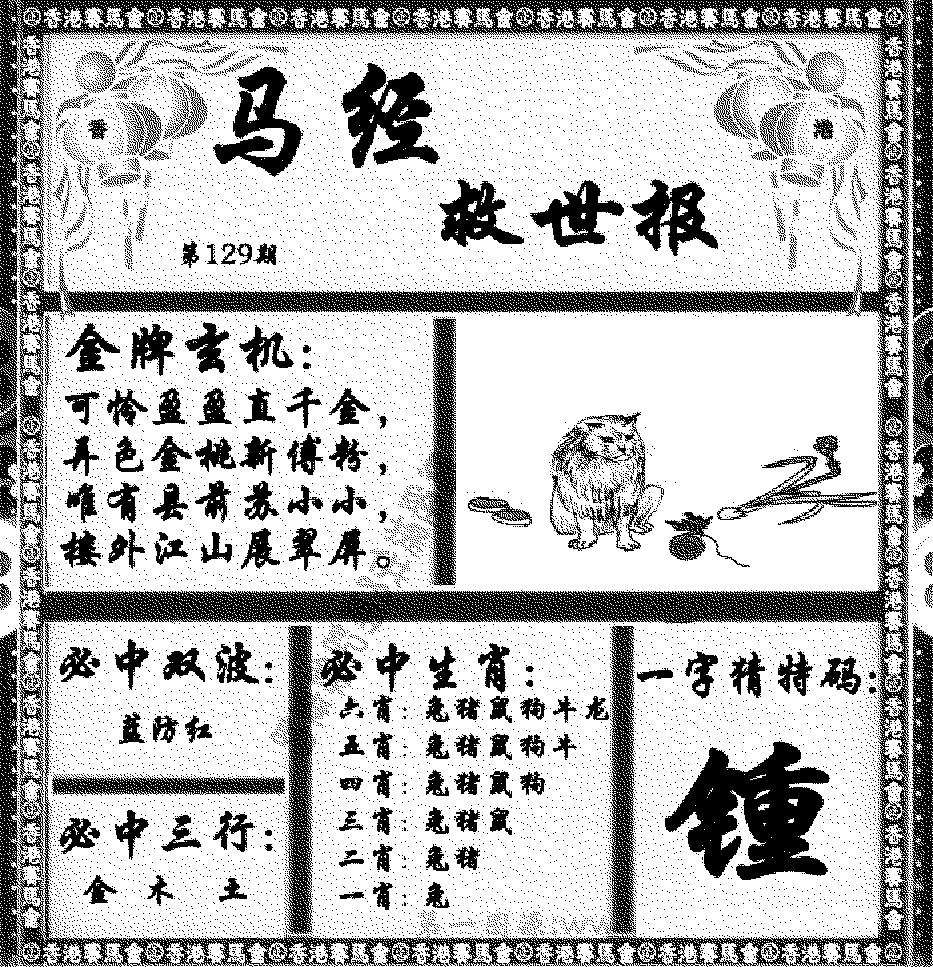 香港賽馬會 香港賽馬會 香港賽馬會 香港賽馬會 香港賽馬會 香港賽馬會 香港賽馬會
香
港
马经
救世报
第129期
金牌玄机：
可怜盈盈直千金，
弄色金桃新傅粉，
唯有县前苏小小，
楼外江山展翠屏。
必中双波：
蓝防红
必中三行：
金 木 土
必中生肖：
六肖：兔猪鼠狗牛龙
五肖：兔猪鼠狗牛
四肖：兔猪鼠狗
三肖：兔猪鼠
二肖：兔猪
一肖：兔
一字猜特码：
锺
香港賽馬會 香港賽馬會 香港賽馬會 香港賽馬會 香港賽馬會 香港賽馬會 香港賽馬會